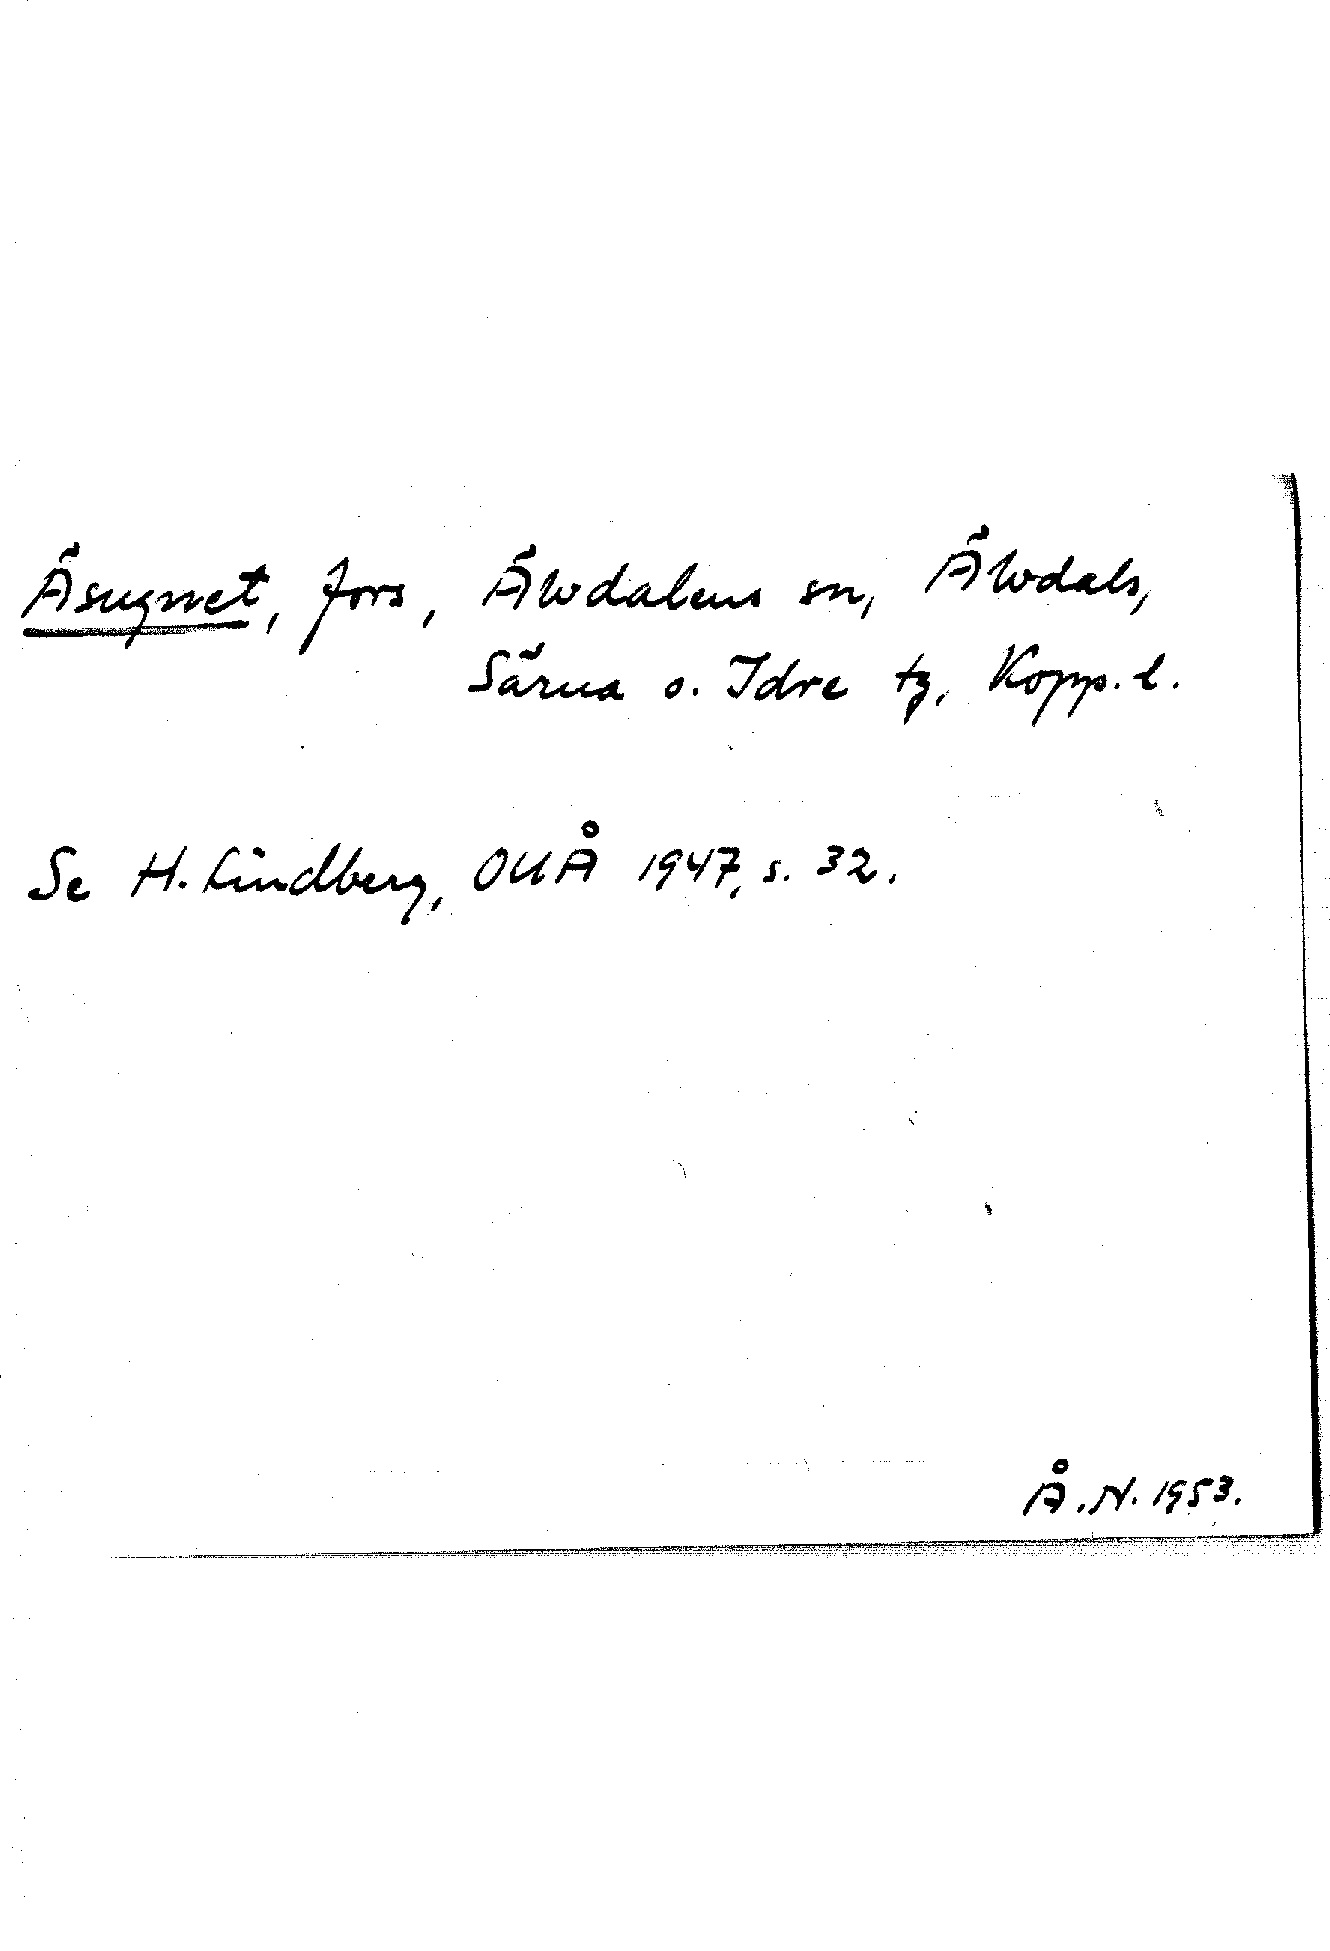 Äsugnet, fors, Älvdalens sn, Älvdals,
Särna o. Idre tg, Kopp. l.
Se H. Lindberg, OUÅ 1947, s. 32.
Å. N. 1953.